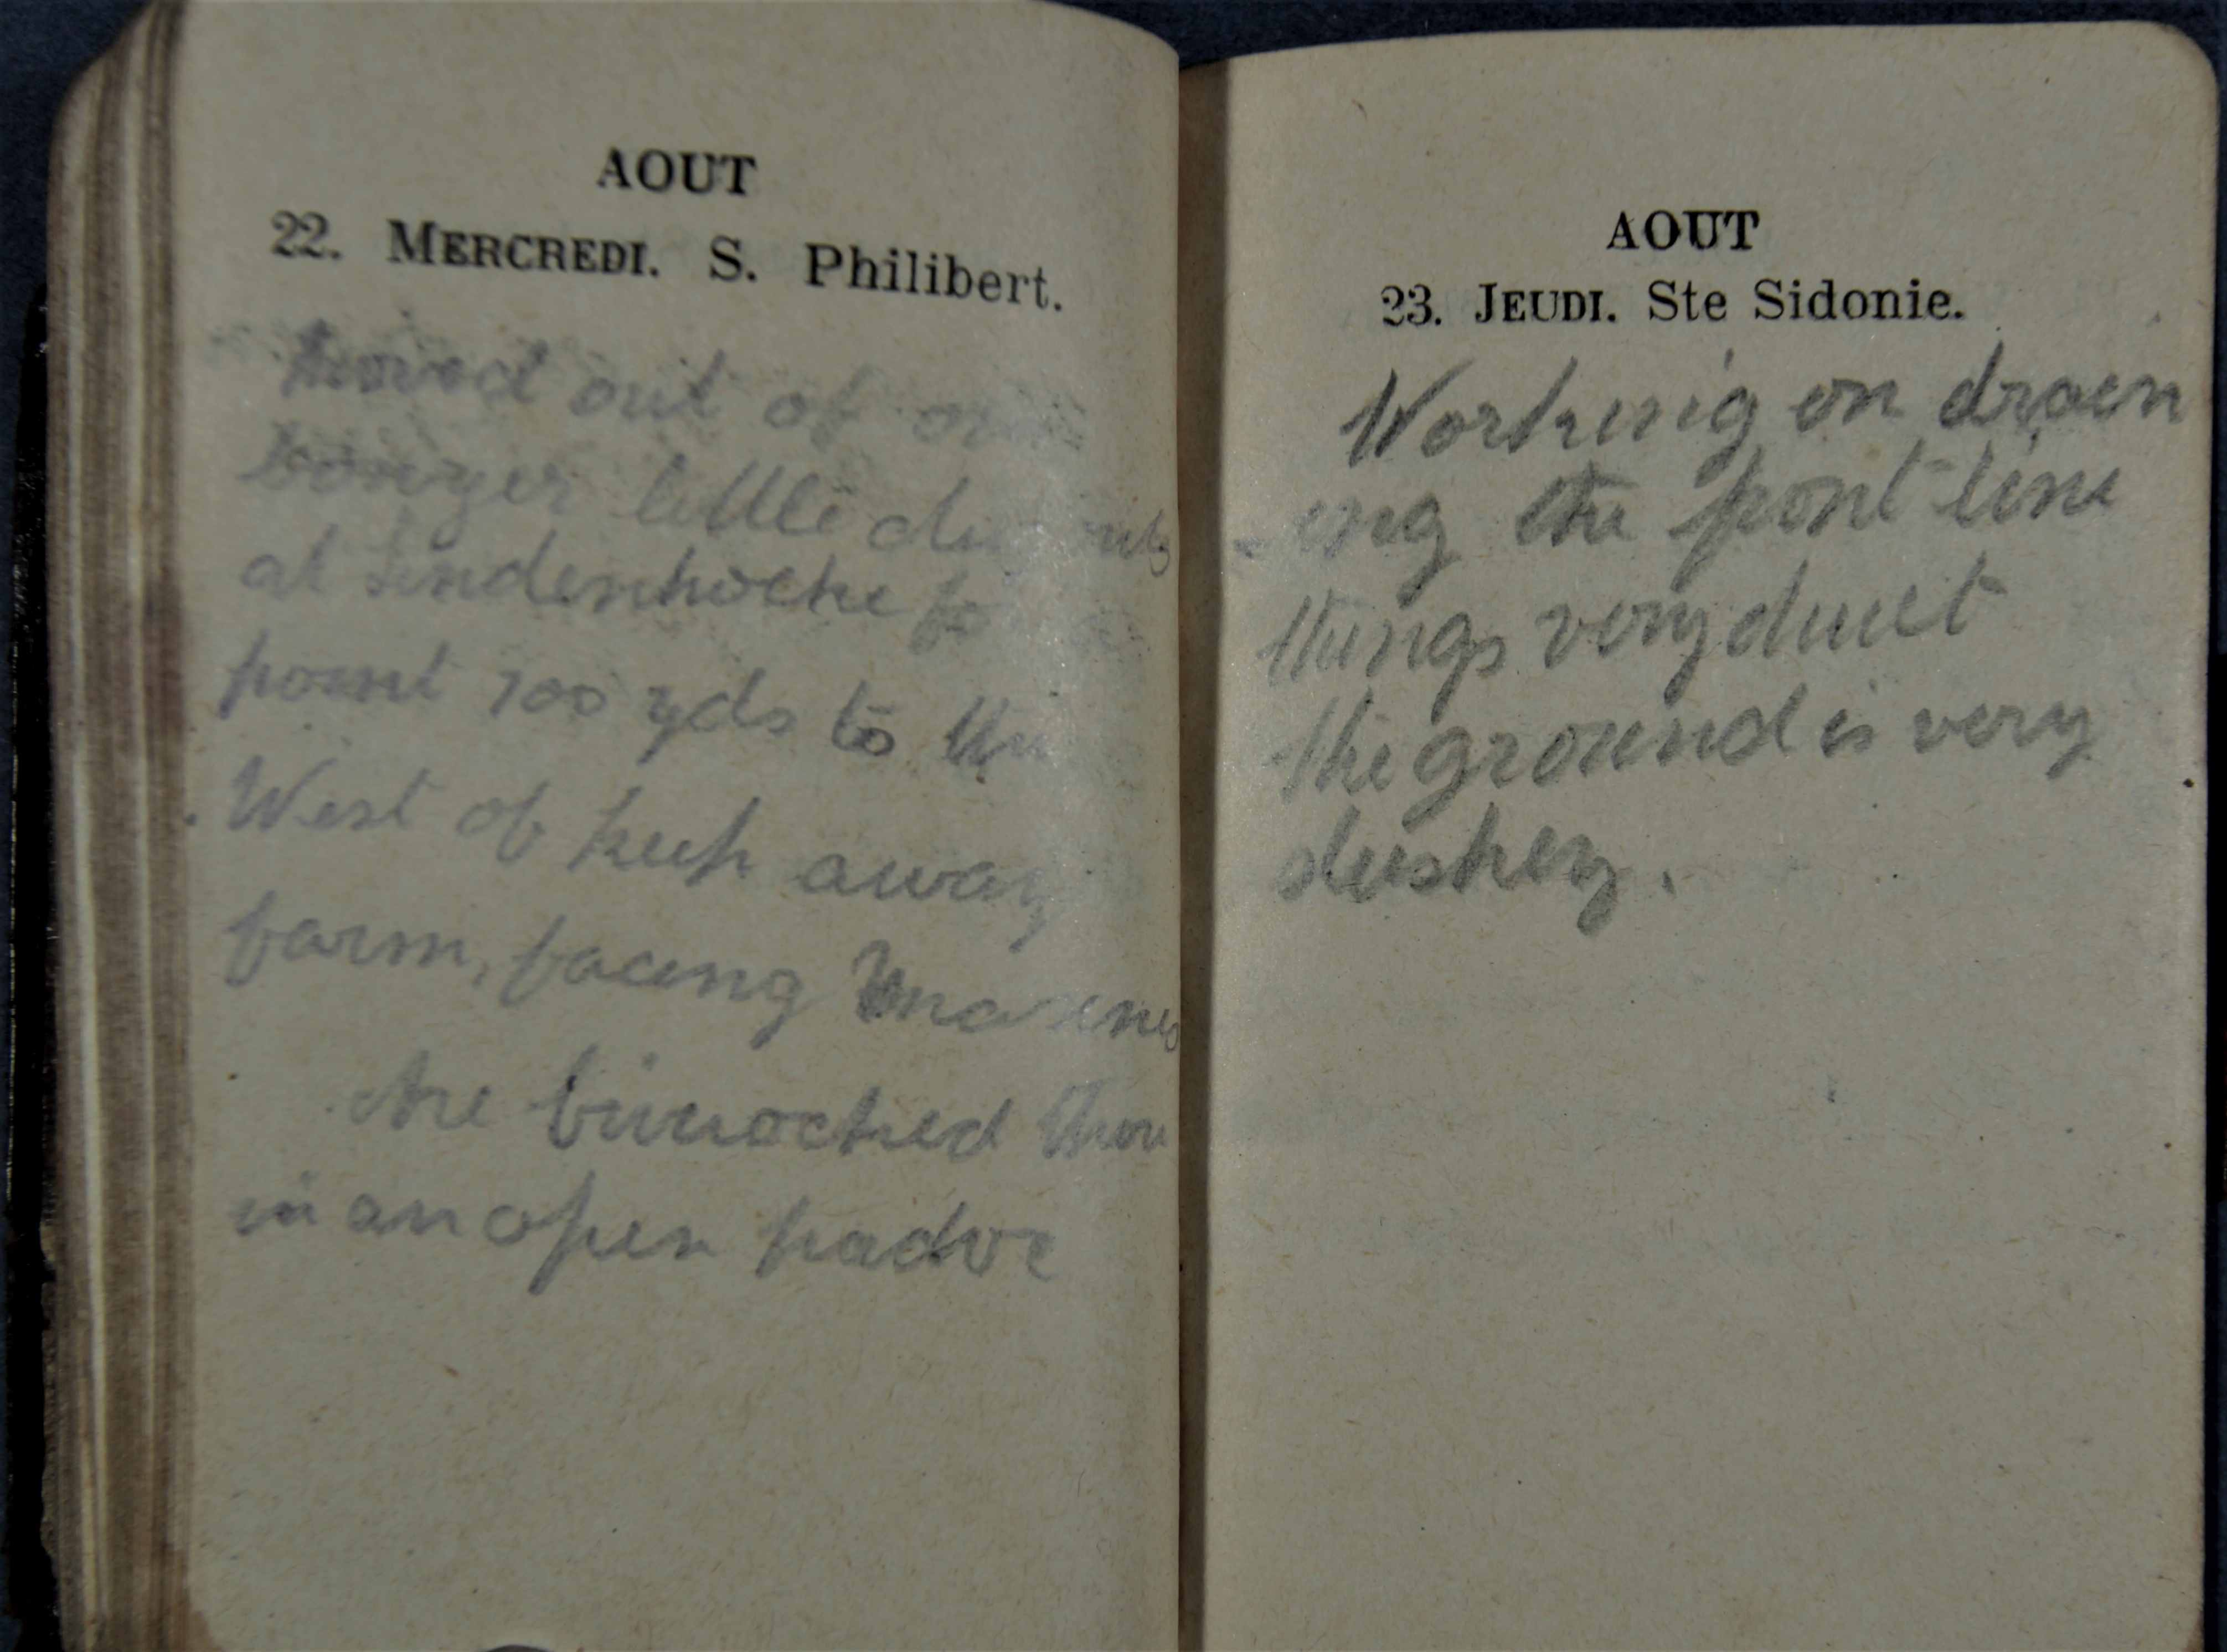 AOUT
22. MERCREDI. S. Philibert.
Moved out of our
bonzer little dug outs
at Lindenhoeke to a
point 700 yds to the
West of Keep away
farm, facing Messines
Are bivuocked there
in an open padoc
AOUT
23. JEUDI. Ste Sidonie.
Working on draen
-ing the front line
things very quiet
the ground is very
slushey.